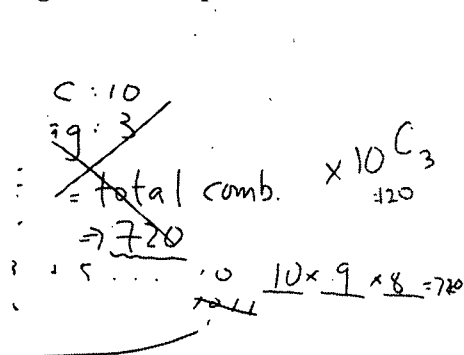 C : 10
g : 3
= total comb. × 10 C 3
=120
⇒ 720
10 × 9 × 8 = 720